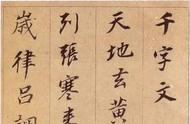 千字文
天地玄黃
列張寒来
歲律吕調